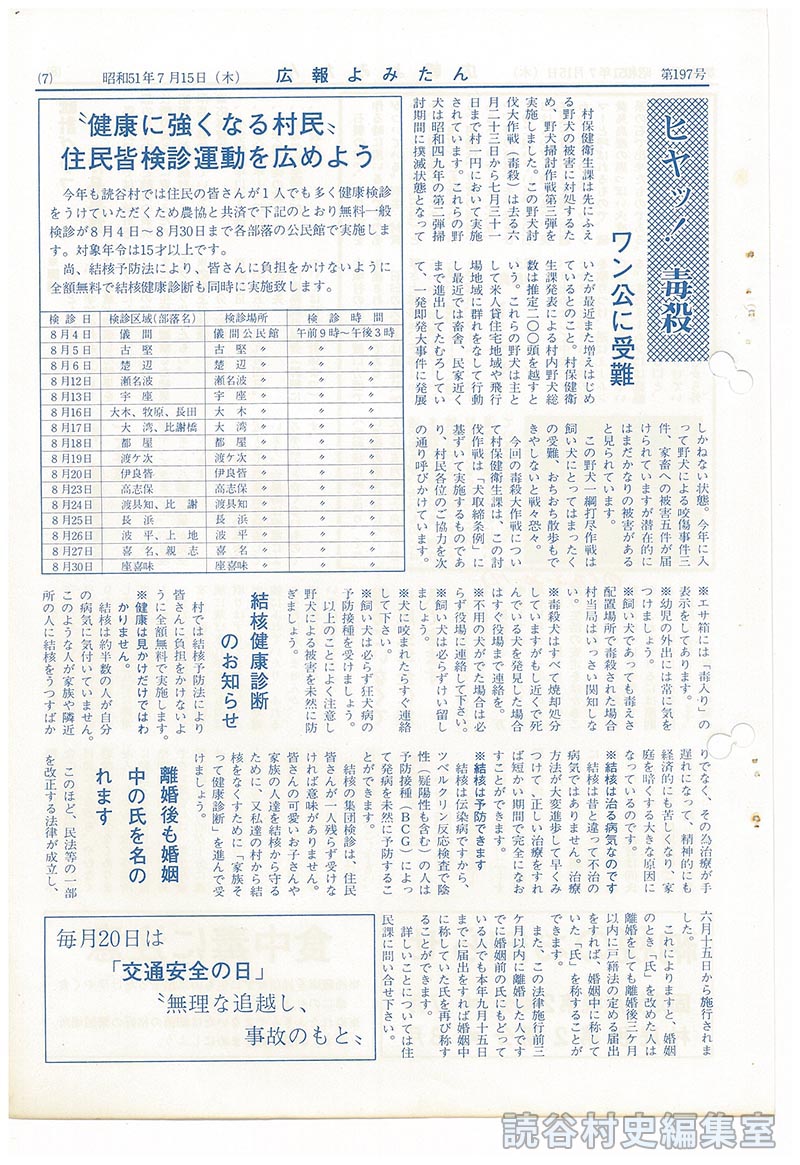 (7) 昭和51年7月15日（木） 広報よみたん 第197号
ヒヤッ！毒殺
ワン公に受難
村保健衛生課は先にふえ
る野犬の被害に対処するた
め、野犬掃討作戦第三弾を
実施しました。この野犬討
伐大作戦（毒殺）は去る六
月二十三日から七月三十一
日まで村一円において実施
されています。これらの野
犬は昭和四九年の第二弾掃
討期間に撲滅状態となって
いたが最近また増えはじめ
ているとのこと。村保健衛
生課発表による村内野犬総
数は推定二〇〇頭を越すと
いう。これらの野犬は主と
して米人貸住宅地域や飛行
場地域に群れをなして行動
し最近では畜舎、民家近く
まで進出してたむろしてい
て、一発即発大事件に発展
しかねない状態。今年に入
って野犬による咬傷事件三
件、家畜への被害五件が届
けられていますが潜在的に
はまだかなりの被害がある
と見られています。
この野犬一網打尽作戦は
飼い犬にとってはまったく
の受難、おちおち散歩もで
きやしないと戦々恐々。
今回の毒殺大作戦につい
て村保健衛生課は、この討
伐作戦は「犬取締条例」に
基ずいて実施するものであ
り、村民各位のご協力を次
の通り呼びかけています。
※エサ箱には「毒入り」の
表示をしてあります。
※幼児の外出には常に気を
つけましょう。
※飼い犬であっても毒えさ
配置場所で毒殺された場合
村当局はいっさい関知しな
い。
※毒殺犬はすべて焼却処分
していますがもし近くで死
んでいる犬を発見した場合
はすぐ役場まで連絡を。
※不用の犬がでた場合は必
らず役場に連絡して下さい。
※飼い犬は必らずけい留し
ましょう。
※犬に咬まれたらすぐ連絡
して下さい。
※飼い犬は必らず狂犬病の
予防接種を受けましょう。
以上のことによく注意し
野犬による被害を未然に防
ぎましょう。
〝健康に強くなる村民〟
住民皆検診運動を広めよう
今年も読谷村では住民の皆さんが1人でも多く健康検診
をうけていただくため農協と共済で下記のとおり無料一般
検診が8月4日～8月30日まで各部落の公民館で実施しま
す。対象年令は15才以上です。
尚、結核予防法により、皆さんに負担をかけないように
全額無料で結核健康診断も同時に実施致します。
検診日 検診区域(部落名) 検診場所 検診時間
8月4日 儀間 儀間公民館 午前9時～午後3時
8月5日 古堅 古堅 〃 〃
8月6日 楚辺 楚辺 〃 〃
8月12日 瀬名波 瀬名波 〃 〃
8月13日 宇座 宇座 〃 〃
8月16日 大木、牧原、長田 大木 〃 〃
8月17日 大湾、比謝橋 大湾 〃 〃
8月18日 都屋 都屋 〃 〃
8月19日 渡ケ次 渡ケ次 〃 〃
8月20日 伊良皆 伊良皆 〃 〃
8月23日 高志保 高志保 〃 〃
8月24日 渡具知、比謝 渡具知 〃 〃
8月25日 長浜 長浜 〃 〃
8月26日 波平、上地 波平 〃 〃
8月27日 喜名、親志 喜名 〃 〃
8月30日 座喜味 座喜味 〃 〃
結核健康診断
のお知らせ
村では結核予防法により
皆さんに負担をかけないよ
うに全額無料で実施します。
※健康は見かけだけではわ
かりません。
結核は約半数の人が自分
の病気に気付いていません。
このような人が家族や隣近
所の人に結核をうつすばか
りでなく、その為治療が手
遅れになって、精神的にも
経済的にも苦しくなり、家
庭を暗くする大きな原因に
なっているのです。
※結核は治る病気なのです
結核は昔と違って不治の
病気ではありません。治療
方法が大変進歩して早くみ
つけて、正しい治療をすれ
ば短かい期間で完全になお
すことができます。
※結核は予防できます
結核は伝染病ですから、
ツベルクリン反応検査で陰
性（疑陽性も含む）の人は
予防接種（BCG）によっ
て発病を未然に予防するこ
とができます。
結核の集団検診は、住民
皆さんが一人残らず受けな
ければ意味がありません。
皆さんの可愛いお子さんや
家族の人達を結核から守る
ために、又私達の村から結
核をなくすために「家族そ
って健康診断」を進んで受
けましょう。
離婚後も婚姻
中の氏を名の
れます
このほど、民法等の一部
を改正する法律が成立し、
六月十五日から施行されま
した。
これによりますと、婚姻
のとき「氏」を改めた人は
離婚をしても離婚後三ケ月
以内に戸籍法の定める届出
をすれば、婚姻中に称して
いた「氏」を称することが
できます。
また、この法律施行前三
ケ月以内に離婚した人です
でに婚姻前の氏にもどって
いる人でも本年九月十五日
までに届出をすれば婚姻中
に称していた氏を再び称す
ることができます。
詳しいことについては住
民課に問い合せ下さい。
毎月20日は
「交通安全の日」
〝無理な追越し、
事故のもと〟
読谷村史編集室